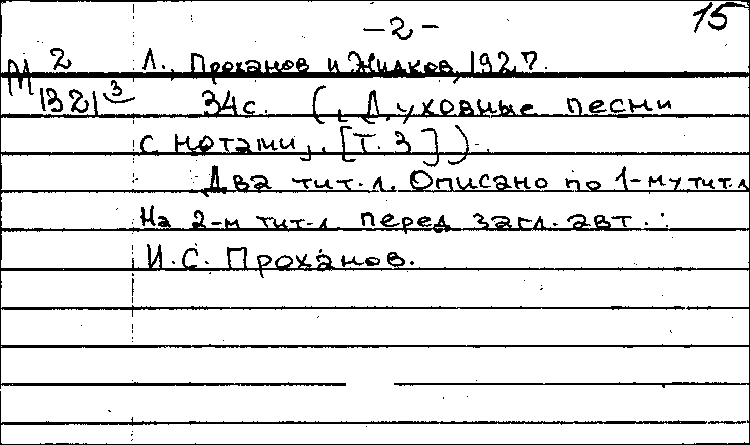 -2-
15
М 2/1321 3
Л., Проханов и Жидков, 1927.
34 с. („Духовные песни
с нотами". [Т. 3]).
Два тит. л. Описано по 1-му тит. л.
На 2-м тит. л перед загл. авт.:
И. С. Проханов.